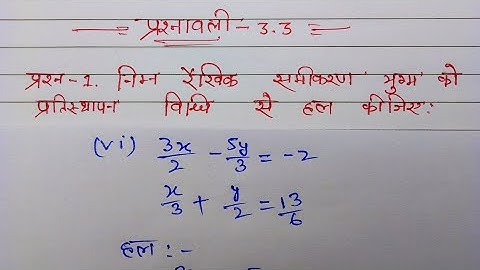 प्रश्नावली - 3.3
प्रश्न-1. निम्न रैखिक समीकरण युग्म को
प्रतिस्थापन विधि से हल कीजिए:
(vi) 3x/2 - 5y/3 = -2
x/3 + y/2 = 13/6
हल :-